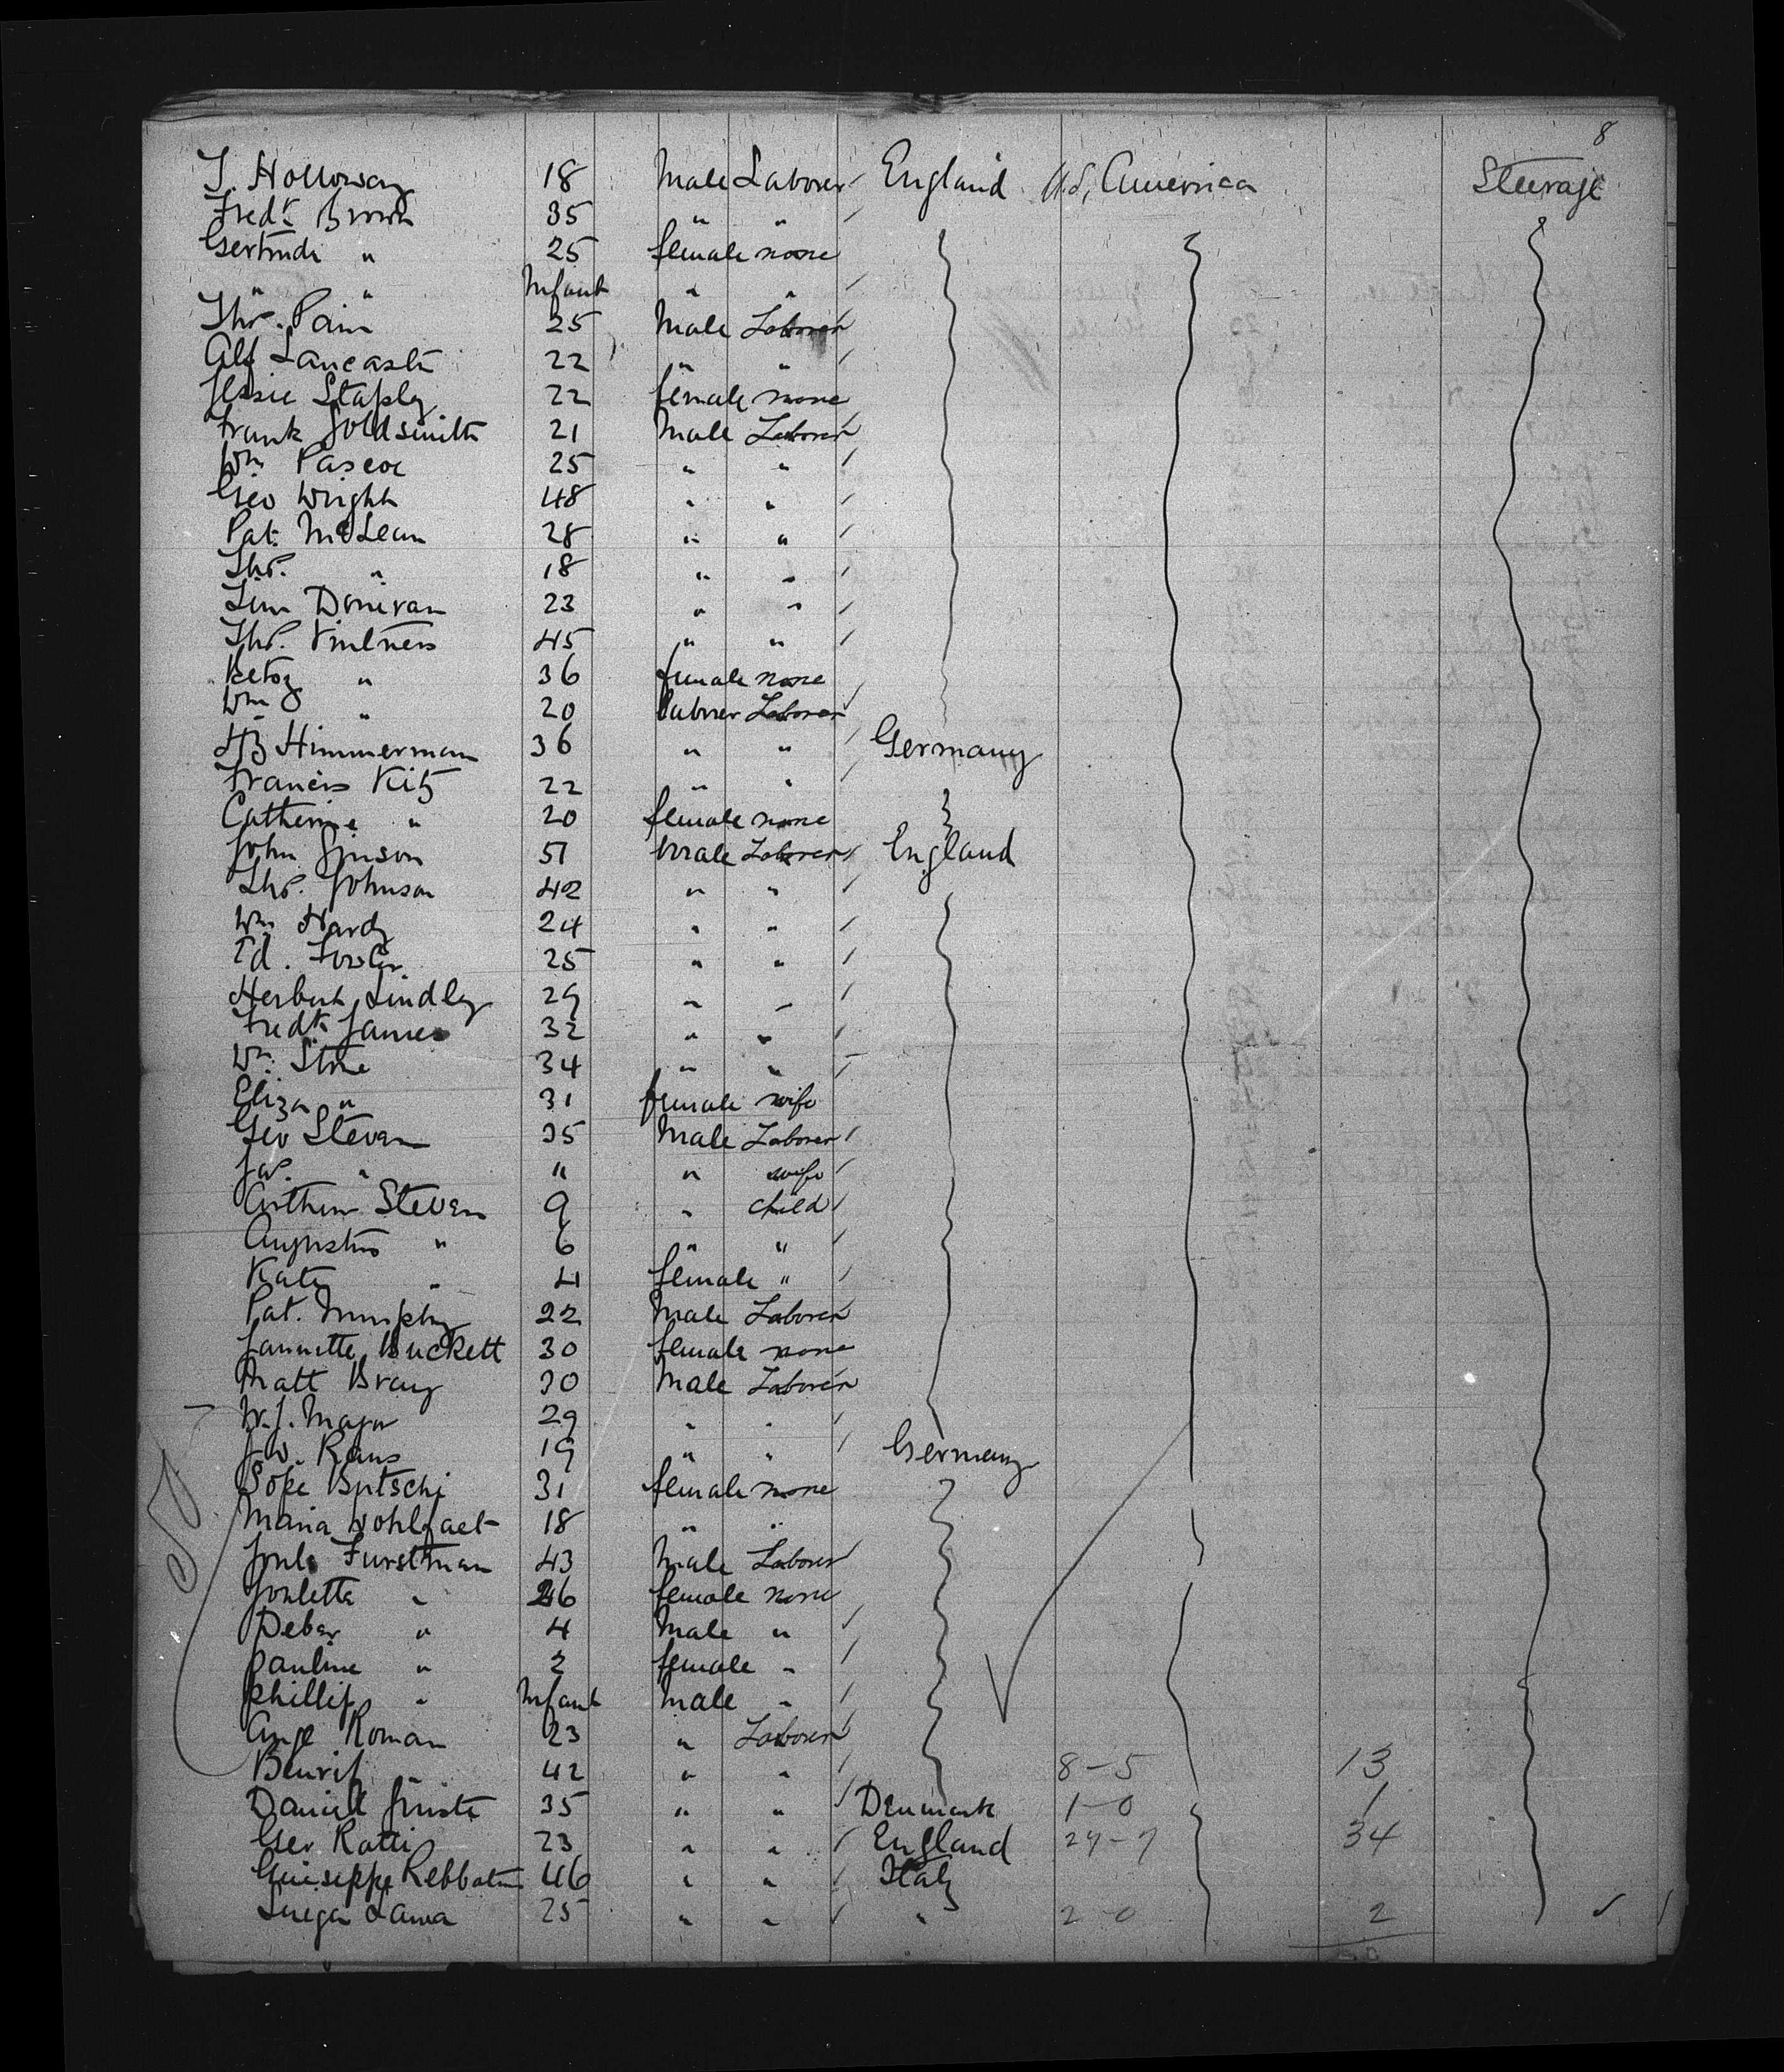 8
T. Holloway 18 Male Laborer England U.S. America Steerage
Fredk Brown 35 " "
Gertrude " 25 female none
" " Infant " "
Thos. Pain 25 Male Laborer
Alf Lancaster 22 " "
Jessie Stapley 22 female none
Frank Goldsmith 21 Male Laborer
Wm Pascoe 25 " "
Geo Wright 48 " "
Pat. McLean 28 " "
Thos. " 18 " "
Tim Donivan 23 " "
Thos. Vintners 45 " "
Betsy " 36 female none
Wm " 20 Laborer Laborer
Hy Himmerman 36 " " Germany
Francis Kitz 22 " "
Catherine " 20 female none
John 51 Male Laborer England
Thos. Johnson 42 " "
Wm Hardy 24 " "
Ed. Fowler 25 " "
Herbert Lindley 29 " "
Fredk James 32 " "
Wm. Stone 34 " "
Eliza " 31 female wife
Geo Steven 35 Male Laborer
Jas. " " " wife
Arthur Steven 9 " child
Augustus " 6 " "
Katy " 4 female "
Pat. Murphy 22 Male Laborer
Jannette Buckett 30 female none
Matt Bray 30 Male Laborer
W.J. Major 29 " "
J.W. Rans 19 " " Germany
31 female none
Maria 18 " "
Furstman 43 Male Laborer
" 26 female none
Peber " 4 Male "
Pauline " 2 female "
Phillip " Infant Male "
Roman 23 " Laborer
" 42 " " 8-5 13
Daniel 35 " " Denmark 1-0 1
Geo Ratti 23 " " England 27-7 34
Guiseppe 46 " " Italy
25 " " " 2-0 2